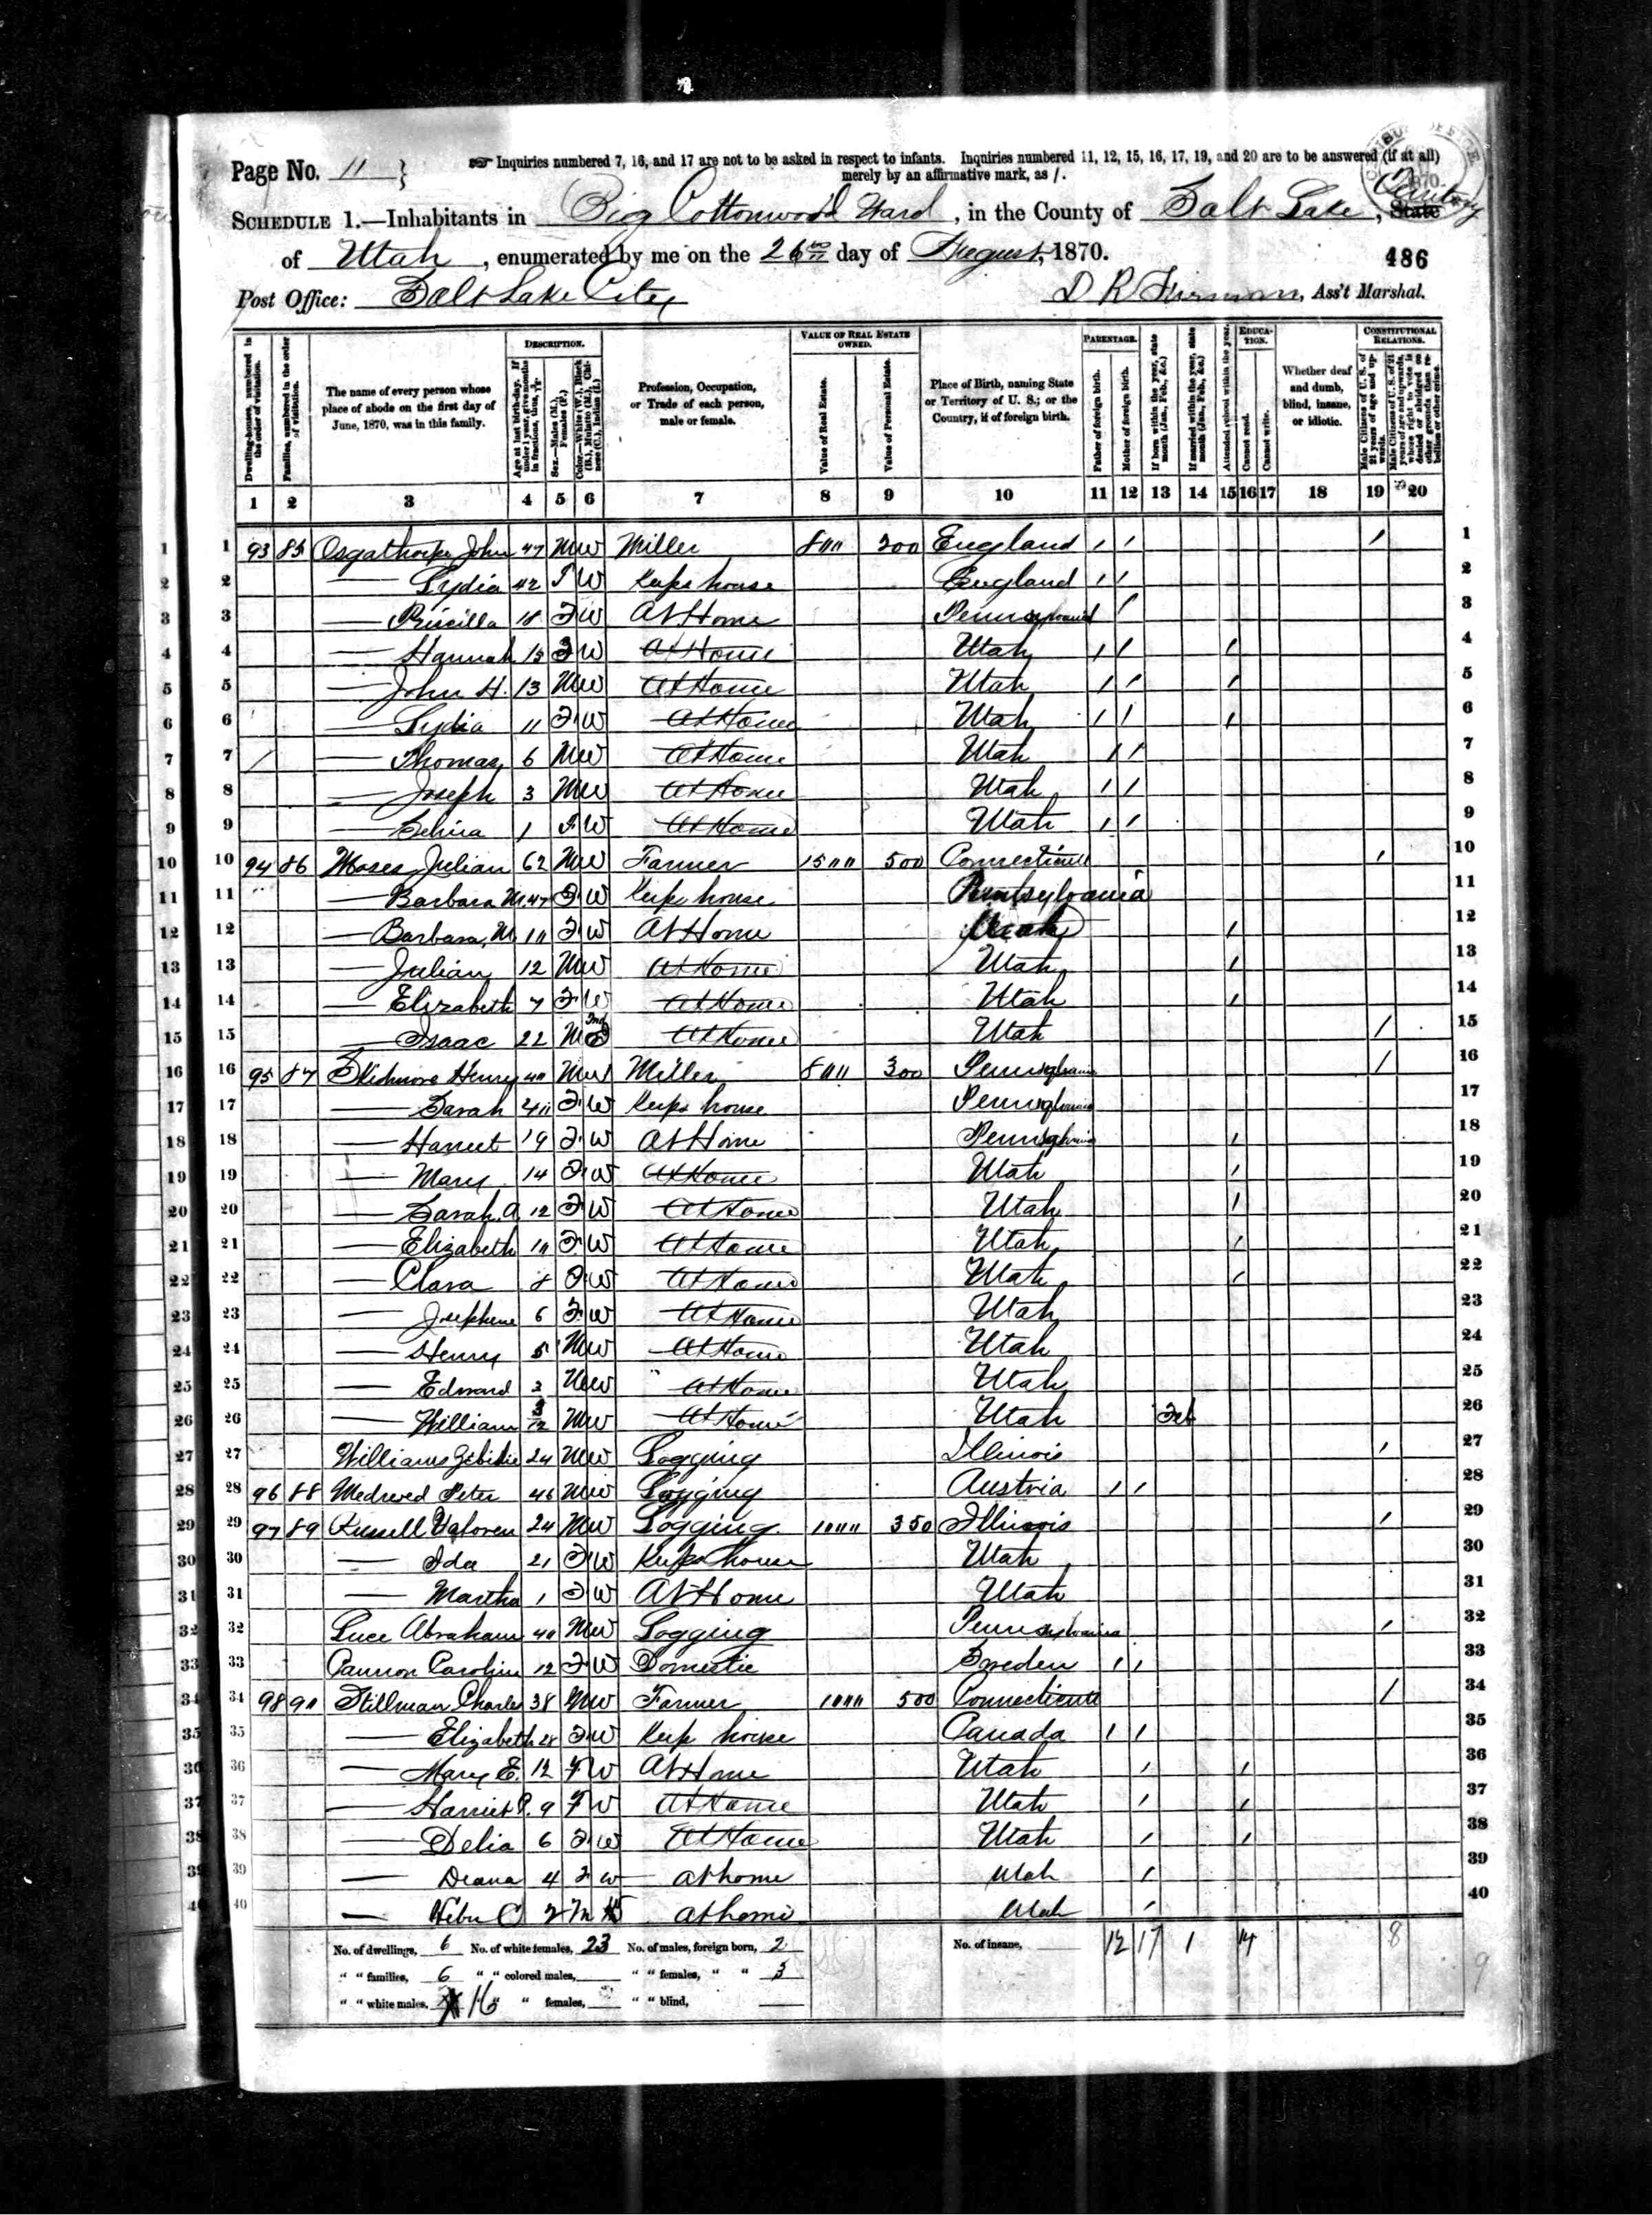 Page No. 11 } Inquiries numbered 7, 16, and 17 are not to be asked in respect to infants. Inquiries numbered 11, 12, 15, 16, 17, 19, and 20 are to be answered (if at all)
merely by an affirmative mark, as /.
SCHEDULE 1.—Inhabitants in Big Cottonwood Ward, in the County of Salt Lake, State
of Utah, enumerated by me on the 26 day of August, 1870.
486
Post Office: Salt Lake City D R Firman, Ass't Marshal.
Dwelling-houses, numbered in the order of visitation.
Families, numbered in the order of visitation.
The name of every person whose place of abode on the first day of June, 1870, was in this family.
DESCRIPTION.
Age at last birth-day. If under 1 year, give months in fractions, thus,
Sex.—Males (M.), Females (F.)
Color.—White (W.), Black (B.), Mulatto (M.), Chinese (C.), Indian (I.)
Profession, Occupation, or Trade of each person, male or female.
VALUE OF REAL ESTATE OWNED.
Value of Real Estate.
Value of Personal Estate.
Place of Birth, naming State or Territory of U. S.; or the Country, if of foreign birth.
PARENTAGE.
Father of foreign birth.
Mother of foreign birth.
If born within the year, state month (Jan., Feb., &c.)
If married within the year, state month (Jan., Feb., &c.)
Attended school within the year.
EDUCATION.
Cannot read.
Cannot write.
Whether deaf and dumb, blind, insane, or idiotic.
CONSTITUTIONAL RELATIONS.
Male Citizens of U. S. of 21 years of age and upwards.
Male Citizens of U. S. of 21 years of age and upwards, whose right to vote is denied or abridged on other grounds than rebellion or other crime.
1 2 3 4 5 6 7 8 9 10 11 12 13 14 15 16 17 18 19 20
1 93 85 Osgathorpe John 47 M W Miller 800 200 England / / / 1
2 — Lydia 42 F W Keeps house England / / 2
3 — Priscilla 18 F W At Home Pennsylvania / 3
4 — Hannah 15 F W At Home Utah / / / 4
5 — John H. 13 M W At Home Utah / / / 5
6 — Lydia 11 F W At Home Utah / / / 6
7 — Thomas 6 M W At Home Utah / / 7
8 — Joseph 3 M W At Home Utah / / 8
9 — 1 F W At Home Utah / / 9
10 94 86 Moses Julian 62 M W Farmer 1500 500 Connecticut / 10
11 — Barbara M. 47 F W Keeps house Pennsylvania 11
12 — Barbara, M 10 F W At Home Utah / 12
13 — Julian 12 M W At Home Utah / 13
14 — Elizabeth 7 F W At Home Utah / 14
15 — Isaac 22 M Ind At Home Utah / 15
16 95 87 Skidmore Henry 40 M W Miller 800 300 Pennsylvania / 16
17 — Sarah 40 F W Keeps house Pennsylvania 17
18 — Harriet 19 F W At Home Pennsylvania / 18
19 — Mary 14 F W At Home Utah / 19
20 — Sarah A 12 F W At Home Utah / 20
21 — Elizabeth 10 F W At Home Utah / 21
22 — Clara 8 F W At Home Utah / 22
23 — Josephine 6 F W At Home Utah 23
24 — Henry 5 M W At Home Utah 24
25 — Edward 2 M W At Home Utah 25
26 — William 3/12 M W At Home Utah Feb 26
27 Williams 24 M W Logging Illinois / 27
28 96 88 Medved Peter 46 M W Logging Austria / / 28
29 97 89 Russell 24 M W Logging 1000 350 Illinois / 29
30 — Ida 21 F W Keeps house Utah 30
31 — Martha 1 F W At Home Utah 31
32 Luce Abraham 40 M W Logging Pennsylvania / 32
33 Cannon Caroline 12 F W Domestic Sweden / / 33
34 98 90 Stillman Charles 38 M W Farmer 1000 500 Connecticut / 34
35 — Elizabeth 28 F W Keep house Canada / / 35
36 — Mary E. 12 F W At Home Utah / / 36
37 — Harriet P. 9 F W At Home Utah / / 37
38 — Delia 6 F W At Home Utah / / 38
39 — Diana 4 F W at home Utah / 39
40 — C 2 M W at home Utah / 40
No. of dwellings, 6 No. of white females, 23 No. of males, foreign born, 2 No. of insane, 12 17 1 14 8
" " families, 6 " " colored males, " " females, " " 3
" " white males, 16 " " females, " " blind,
9